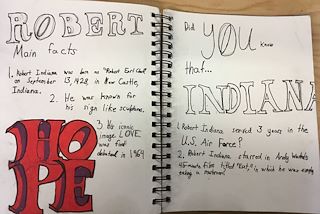 ROBERT
Main facts
1. Robert Indiana was born as "Robert Earl Clark"
on September 13, 1928 in New Castle,
Indiana.
2. He was known for
his sign like sculpture.
3. His iconic
image LOVE
was first
debuted in 1964
HO
PE
Did
YOU
know
that...
INDIANA
1. Robert Indiana served 3 years in the
U.S. Air Force?
2. Robert Indiana starred in Andy Warhol's
45-minute film titled "Eat", in which he was
eating a mushroom?